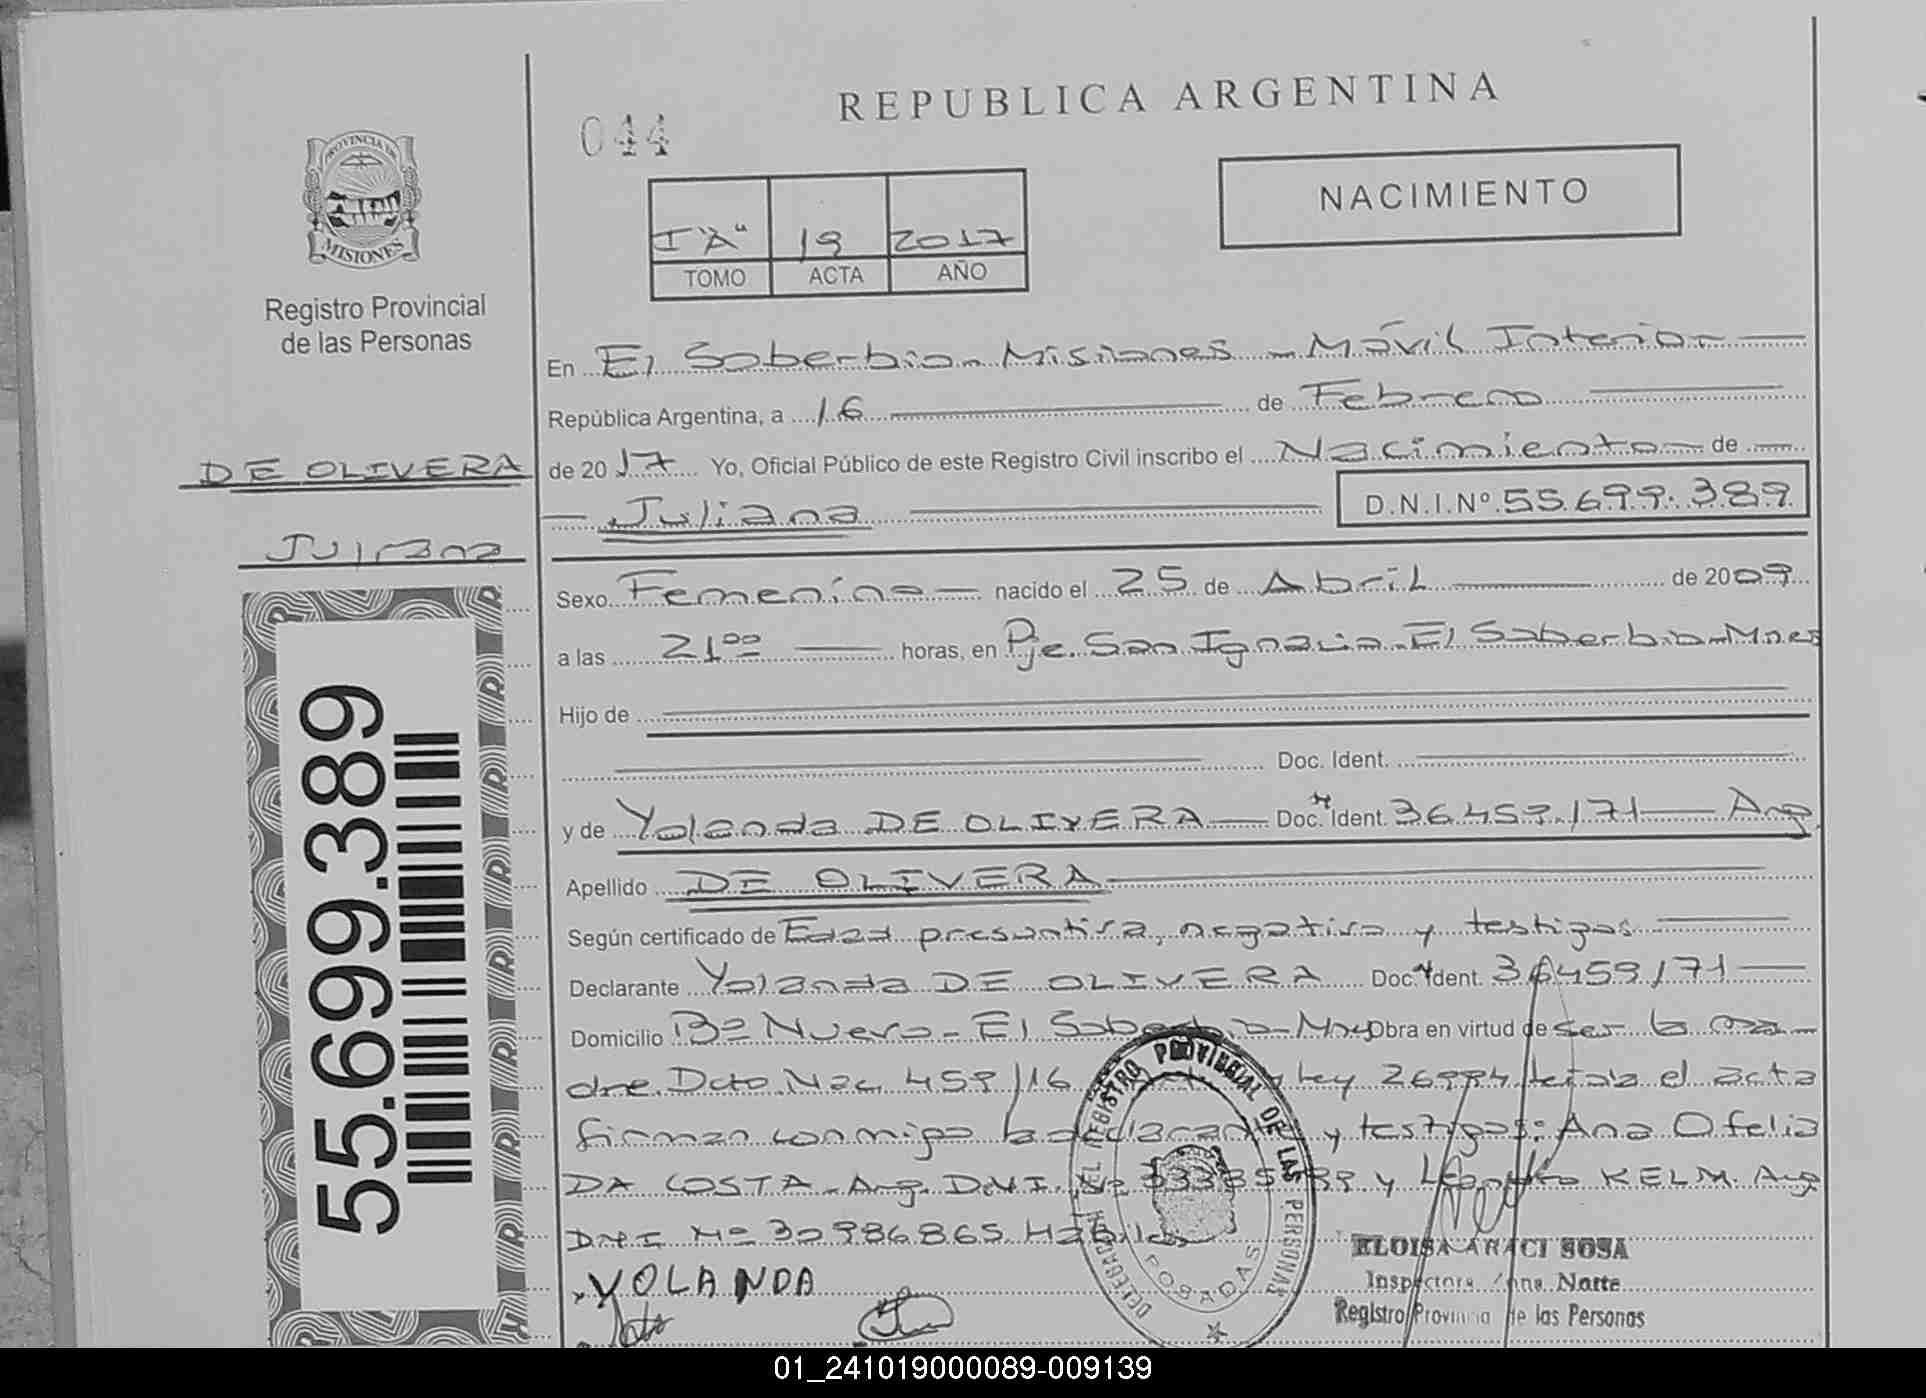 REPUBLICA ARGENTINA
044
PROVINCIA DE
MISIONES
Registro Provincial
de las Personas
NACIMIENTO
I "A" 19 2017
TOMO ACTA AÑO
En El Soberbio - Misiones - Móvil Interior
República Argentina, a 16 de Febrero
de 2017 Yo, Oficial Público de este Registro Civil inscribo el Nacimiento de
Juliana D.N.I.Nº 55.699.389
DE OLIVERA
Juliana
55.699.389
Sexo Femenino nacido el 25 de Abril de 2009
a las 21ºº horas, en Pje. San Ignacio - El Soberbio - Mnes
Hijo de
Doc. Ident.
y de Yolanda DE OLIVERA Doc. Ident. 36.459.171 Arg
Apellido DE OLIVERA
Según certificado de Edad presuntiva, negativa y testigos
Declarante Yolanda DE OLIVERA Doc. Ident. 36459171
Domicilio Bº Nuevo - El Soberbio - Mnes Obra en virtud de ser la ma
dre. Dcto. Nac. 459/16 y ley 26994 leída el acta
firman conmigo la declarante y testigos: Ana Ofelia
DA COSTA - Arg. D.N.I. Nº y KELM. Arg
DNI Nº 30986865. Hábiles
YOLANDA
DELEGACION DEL REGISTRO PROVINCIAL DE LAS PERSONAS
POSADAS
ELOISA ARACI SOSA
Inspectora Zona Norte
Registro Provincial de las Personas
01_241019000089-009139